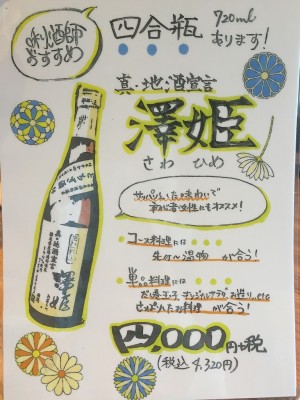 利酒師
おすすめ
四合瓶
720ml
あります!
真・地酒宣言
澤姫
さわ ひめ
サッパリした味わいで
初心者・女性にもオススメ!
コース料理には
生ガキ〜温物 が合う!
単品料理には
だし巻玉子, お造り...etc
さっぱりしたお料理 が合う!
四,000円+税
(税込 4,320円)